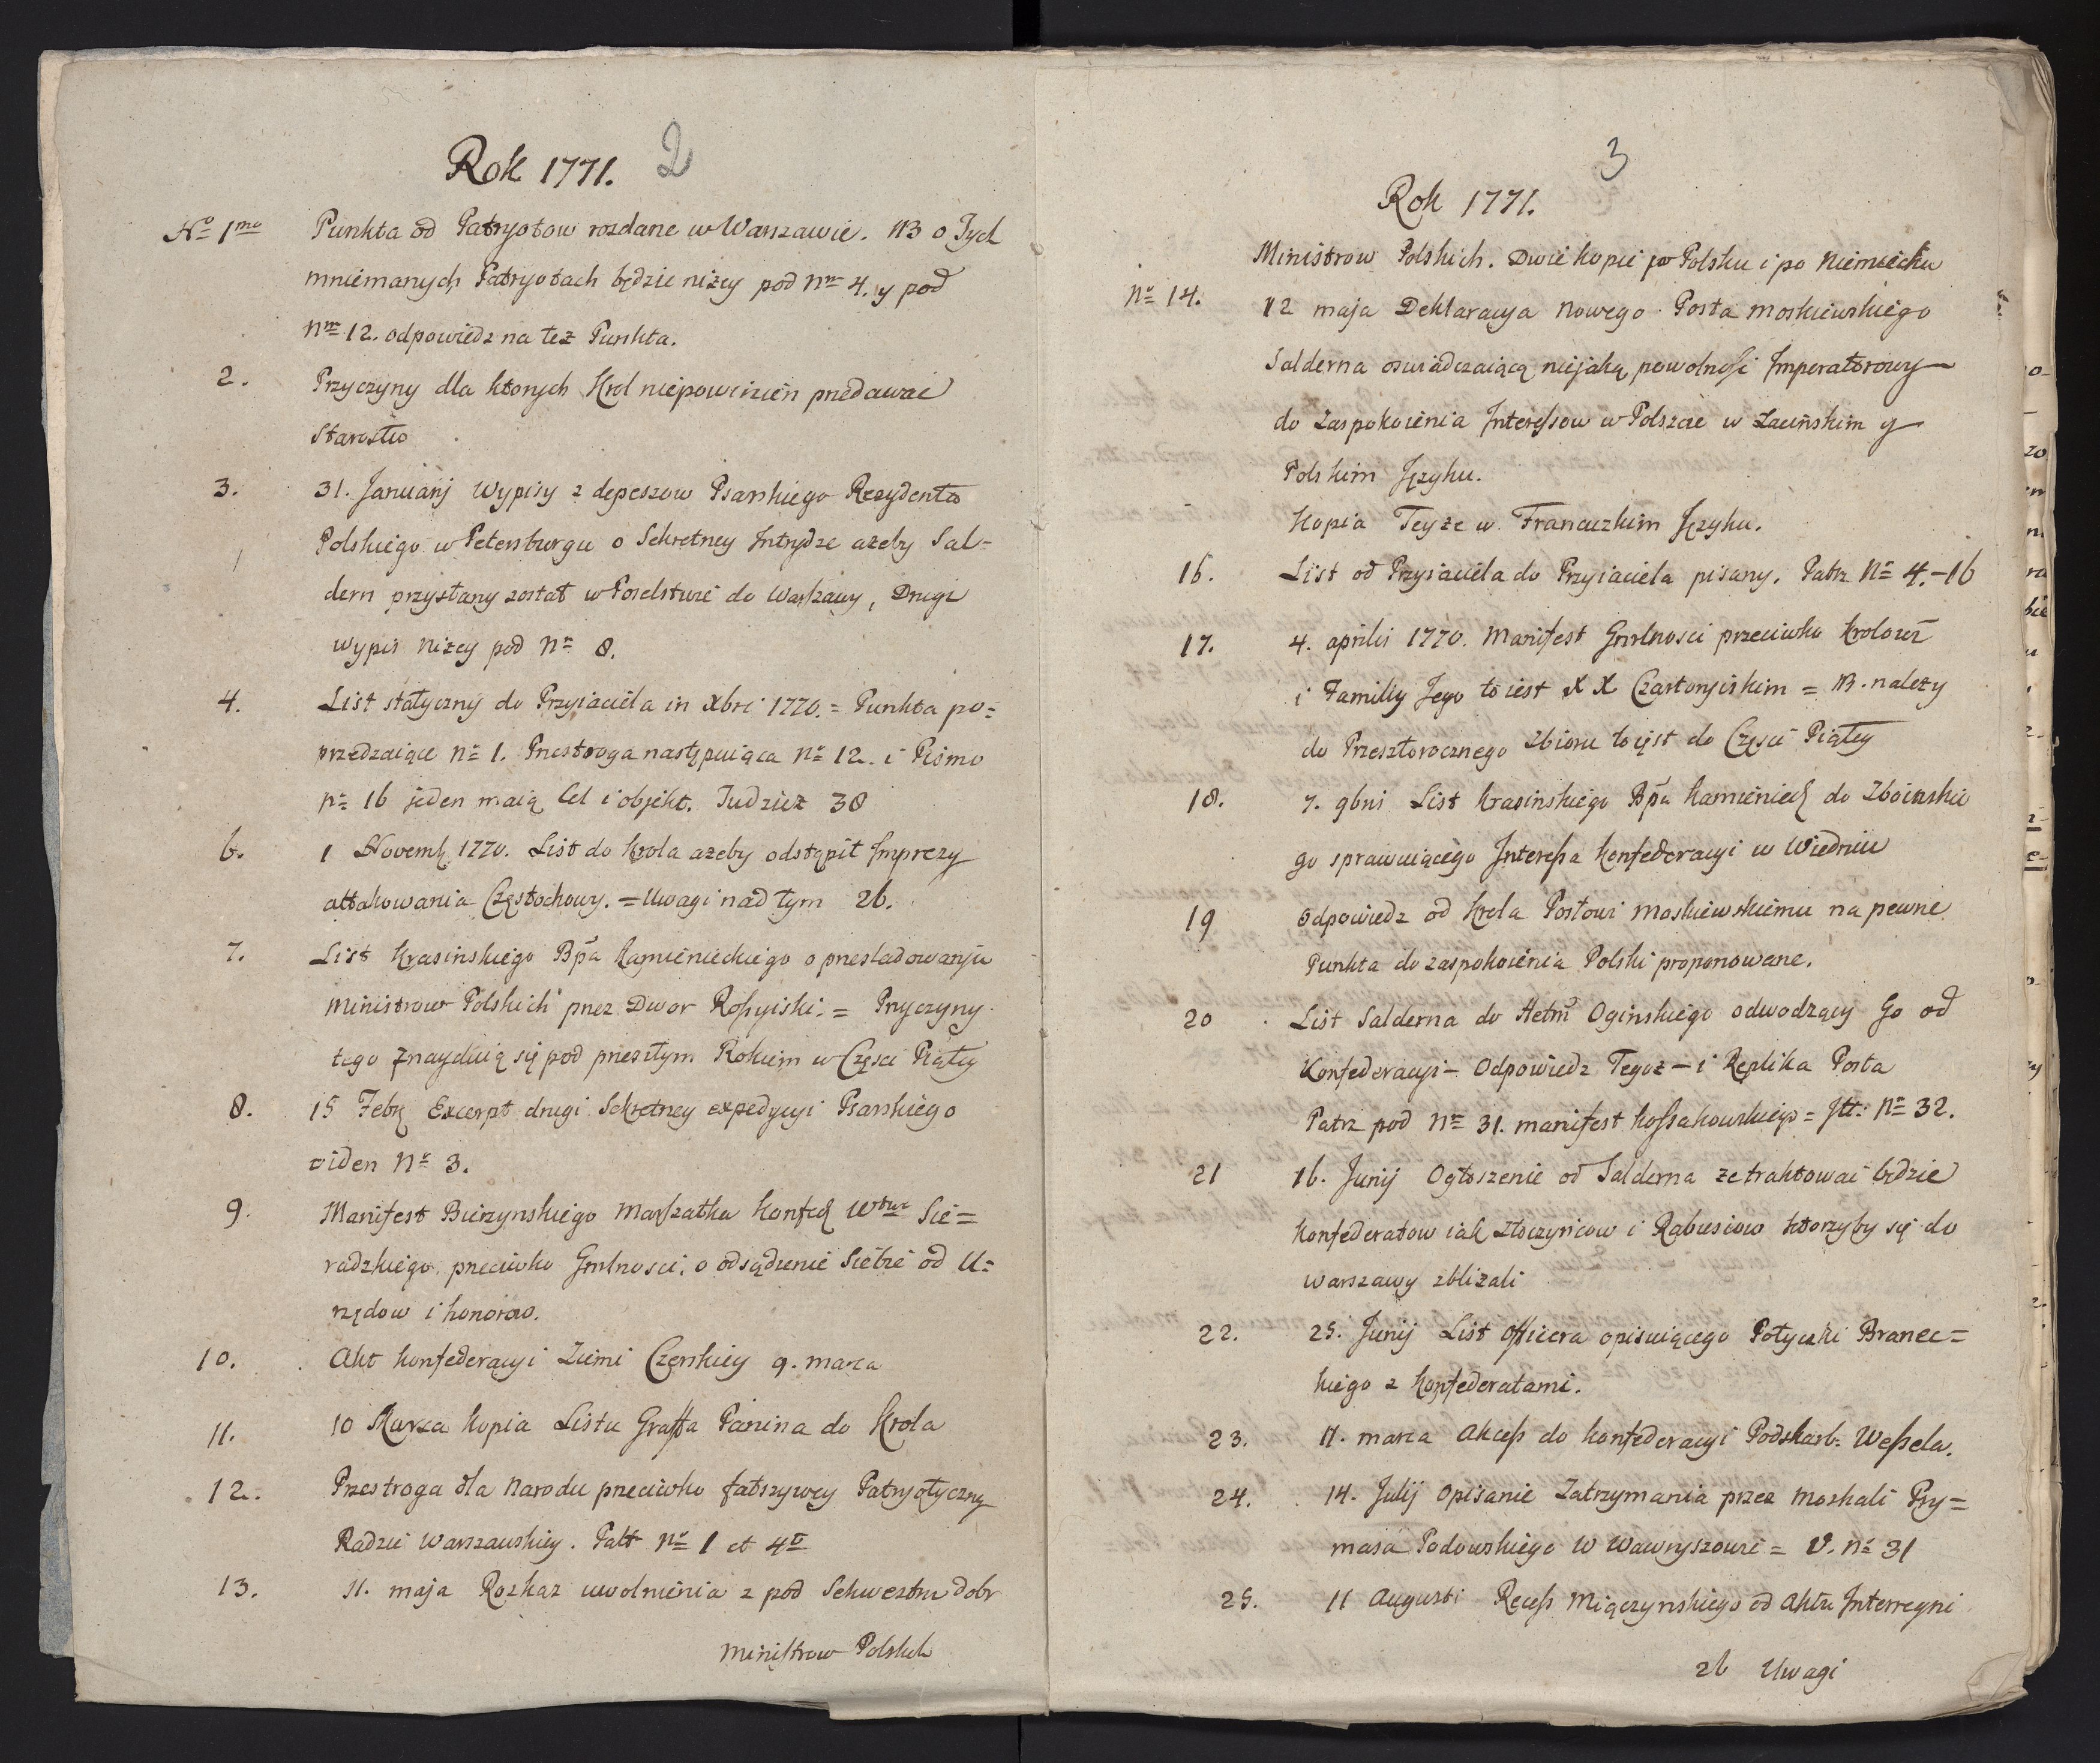 Rok 1771. 2
Nº 1mo Punkta od Patryotow rozdane w Warszawie. NB o Tych
mniemanych Patryotach będzie niżey pod Nro 4. y pod
Nro 12. odpowiedz na też Punkta.
2. Przyczyny dla ktorych Krol niepowinien przedawać
Starostw
3. 31. Januarij Wypisy z depeszow Psarskiego Rezydenta
Polskiego w Petersburgu o Sekretney Intrydze ażeby Sal=
dern przysłany został w Poselstwie do Warszawy, Drugi
wypis niżey pod Nº 8.
4. List statyczny do Przyiaciela in Xbri 1770. = Punkta po=
przedzaiące Nº 1. Przestroga następuiąca Nº 12. i Pismo
Nº 16 jeden maią Cel i objekt. Tudzież 38
6. 1 Novemb. 1770. List do Krola ażeby odstąpił Imprezy
attakowania Częstochowy. = Uwagi nad tym 26.
7. List Krasinskiego Bpa Kamienieckiego o przesladowaniu
Ministrow Polskich przez Dwor Rossyiski. = Przyczyny
tego znayduią się pod przeszłym Rokiem w Częsci Piątey
8. 15 Febr. Excerpt drugi Sekretney expedycyi Psarskiego
viden Nº 3.
9. Manifest Bierzynskiego Marszałka Konfed. Wdtwa Sie=
radzkiego przeciwko Gnrlnosci, o odsądzenie Siebie od U=
rzędow i honorow.
10. Akt konfederacyi Ziemi Czerskiey 9. marca
11. 10 Marca Kopia Listu Graffa Panina do Krola
12. Przestroga dla Narodu przeciwko fałszywey Patryotyczney
Radzie Warszawskiey. Patt Nº 1 et 4to
13. 11. maja Rozkaz uwolnienia z pod Sekwestru dobr
Ministrow Polskich
3
Rok 1771.
Ministrow Polskich. Dwie kopie po Polsku i po Niemiecku
Nº 14. 12 maja Deklaracya Nowego Posła moskiewskiego
Salderna oswiadczaiącą niejaką powolność Imperatorowy
do Zaspokoienia Interessow w Polszcze w Łacinskim y
Polskim Języku.
Kopia Teyże w Francuzkim Języku.
16. List od Przyiaciela do Przyiaciela pisany. Patrz Nº 4. – 16
17. 4. aprilis 1770. Manifest Gnrlnosci przeciwko Krolowi
i Familiy Jego to iest X X Czartoryiskim = NB. należy
do Przeszłorocznego Zbioru to iest do Częsci Piątey
18. 7. 9bris List Krasinskiego Bpa Kamienieck do Zboinskie
go sprawuiącego Interessa Konfederacyi w Wiedniu
19 Odpowiedz od Krola Posłowi Moskiewskiemu na pewne
Punkta do zaspokoienia Polski proponowane.
20 List Salderna do Hetm Oginskiego odwodzący Go od
Konfederacyi – Odpowiedz Tegoż – i Replika Posła
Patrz pod Nro 31. manifest Kossakowskiego = Itt: Nº 32.
21 16. Junij Ogłoszenie od Salderna że traktować będzie
Konfederatow iak Złoczyńcow i Rabusiow ktorzyby się do
Warszawy zbliżali
22. 25. Junij List Officera opisuiącego Potyczki Branec=
kiego z Konfederatami.
23. 11. marca Akcess do Konfederacyi Podskarb: Wessela.
24. 14. Julij Opisanie Zatrzymania przez Moskali Pry=
masa Podoskiego w Wawryszowie = V. Nº 31
25. 11 Augusti Recess Miączynskiego od Aktu Interregni
26 Uwagi